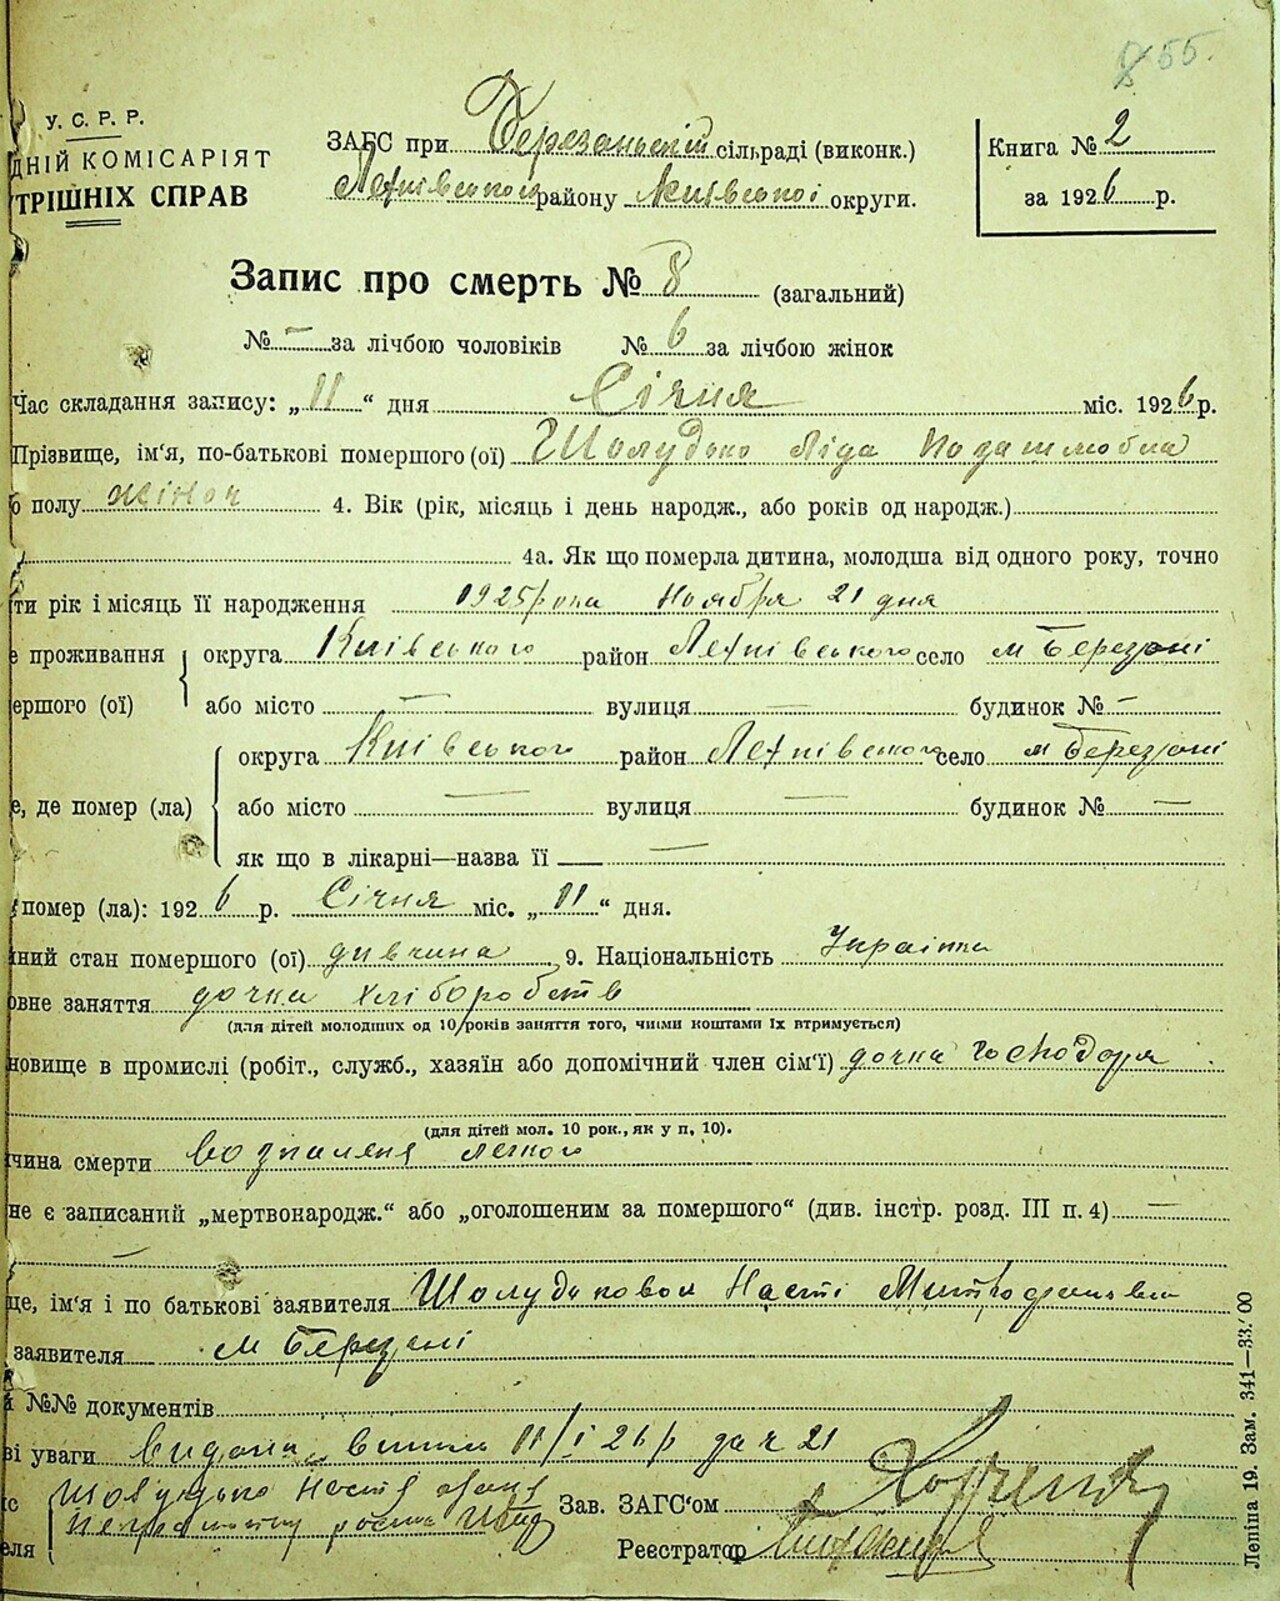 55.
У. С. Р. Р.
ДНІЙ КОМІСАРІЯТ
ТРІШНІХ СПРАВ
ЗАГС при Березанській сільраді (виконк.)
району Київської округи.
Книга № 2
за 1926 р.
Запис про смерть № 8 (загальний)
№ — за лічбою чоловіків № 6 за лічбою жінок
Час складання запису: „11“ дня Січня міс. 1926 р.
Прізвище, ім'я, по-батькові помершого (ої) Шолудько Ліда Позашлюбна
о полу жіноч 4. Вік (рік, місяць і день народж., або років од народж.)
4а. Як що померла дитина, молодша від одного року, точно
ти рік і місяць її народження 1925 рока Ноября 21 дня
е проживання округа Київського район село м Березані
ершого (ої) або місто — вулиця — будинок № —
округа Київського район село м Березані
е, де помер (ла) або місто — вулиця — будинок № —
як що в лікарні—назва її —
помер (ла): 1926 р. Січня міс. „11“ дня.
ний стан помершого (ої) дивчина 9. Національність Українка
овне заняття дочка хліборобств
(для дітей молодших од 10 років заняття того, чиїми коштами їх втримується)
новище в промислі (робіт., служб., хазяїн або допомічний член сім'ї) дочка господоря
(для дітей мол. 10 рок., як у п. 10).
чина смерти легкого
не є записаний „мертвонародж.“ або „оголошеним за помершого“ (див. інстр. розд. III п. 4) —
—
це, ім'я і по батькові заявителя Шолудькова Насті
заявителя м Березані
й №№ документів
ві уваги видана 11/I 26 р 21
с Шолудько
еля Зав. ЗАГС'ом
Реєстратор
Леніна 19. Зам. 341—33.'00